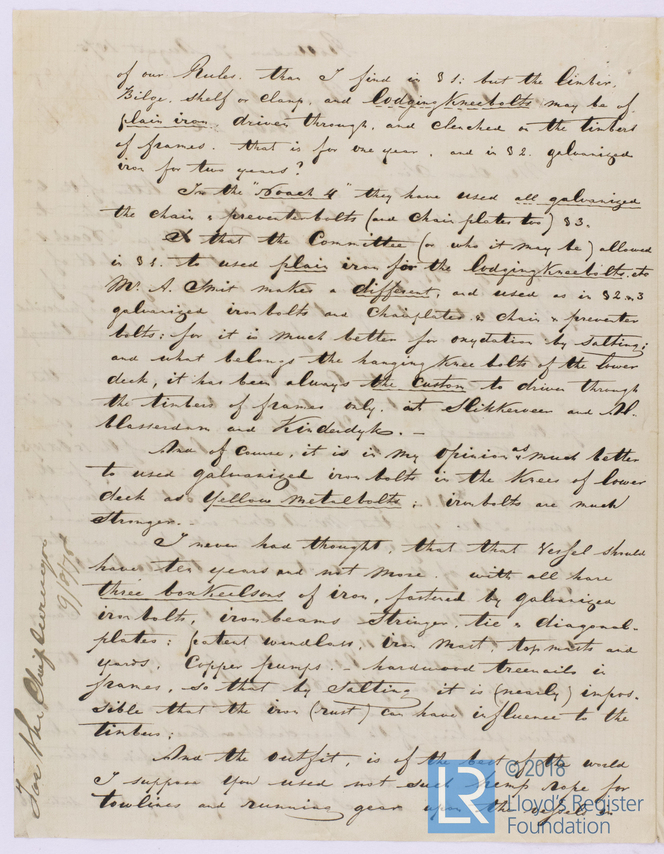 of our Rules. than I find in § 1: but the limber,
Bilge, shelf or clamp, and lodging Kneebolts may be of
plain iron, driven through, and clenched on the timbers
of frames. that is for one year, and in § 2. galvanized
iron for two years?
In the "Noach 4" they have used all galvanized
the chain & preventerbolts (and chain plates too) § 3.
that the Committee (or who it may be) allowed
in § 1. to used plain iron for the lodging Kneebolts, etc
Mr. A. Smit makes a different, and used as in § 2 & 3
galvanized ironbolts and Chainplates & chain & preventer
bolts; for it is much better for oxydation by salting;
and what belongs the hanging Knee bolts of the lower
deck, it has been always the custom to driven through
the timbers of frames only, at Slikkerveer and Al-
blasserdam and Kinderdyk. —
And of course, it is in my opinion as much better
to used galvanized iron bolts in the Knees of lower
deck as Yellow metalbolts; ironbolts are much
stronger. —
I never had thought, that that Vessel should
have ten years and not more. with all have
three boxkeelsons of iron, fastened by galvanized
ironbolts, ironbeams stringer, tie & diagonal-
plates: patent windlass, iron mast, topmasts and
yards, Copper pumps. - hardwood treenails in
frames, so that by Salting it is (nearly) impos-
sible that the iron (rust) can have influence to the
timbers;
And the outfit, is of the best of the world
I suppose you used not such hemp rope for
towlines and running gear upon the vessels in
For the Chief Surveyor
9/9/78
LR
©2018
Lloyd's Register
Foundation